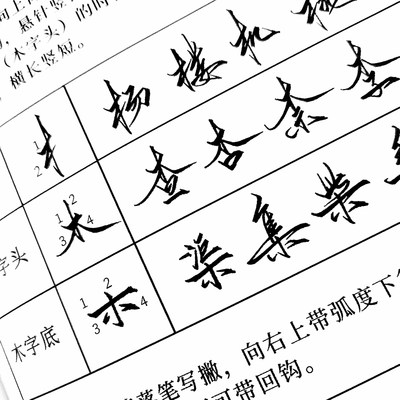 向上
悬针竖
（木字头）的
横长竖短。
1 2 杨 楼 机
字头 1 2 3 4 木 查 杏 李
木字底 1 2 3 4 渠 集 柴
落笔写撇，向右上带弧度下
可带回钩。